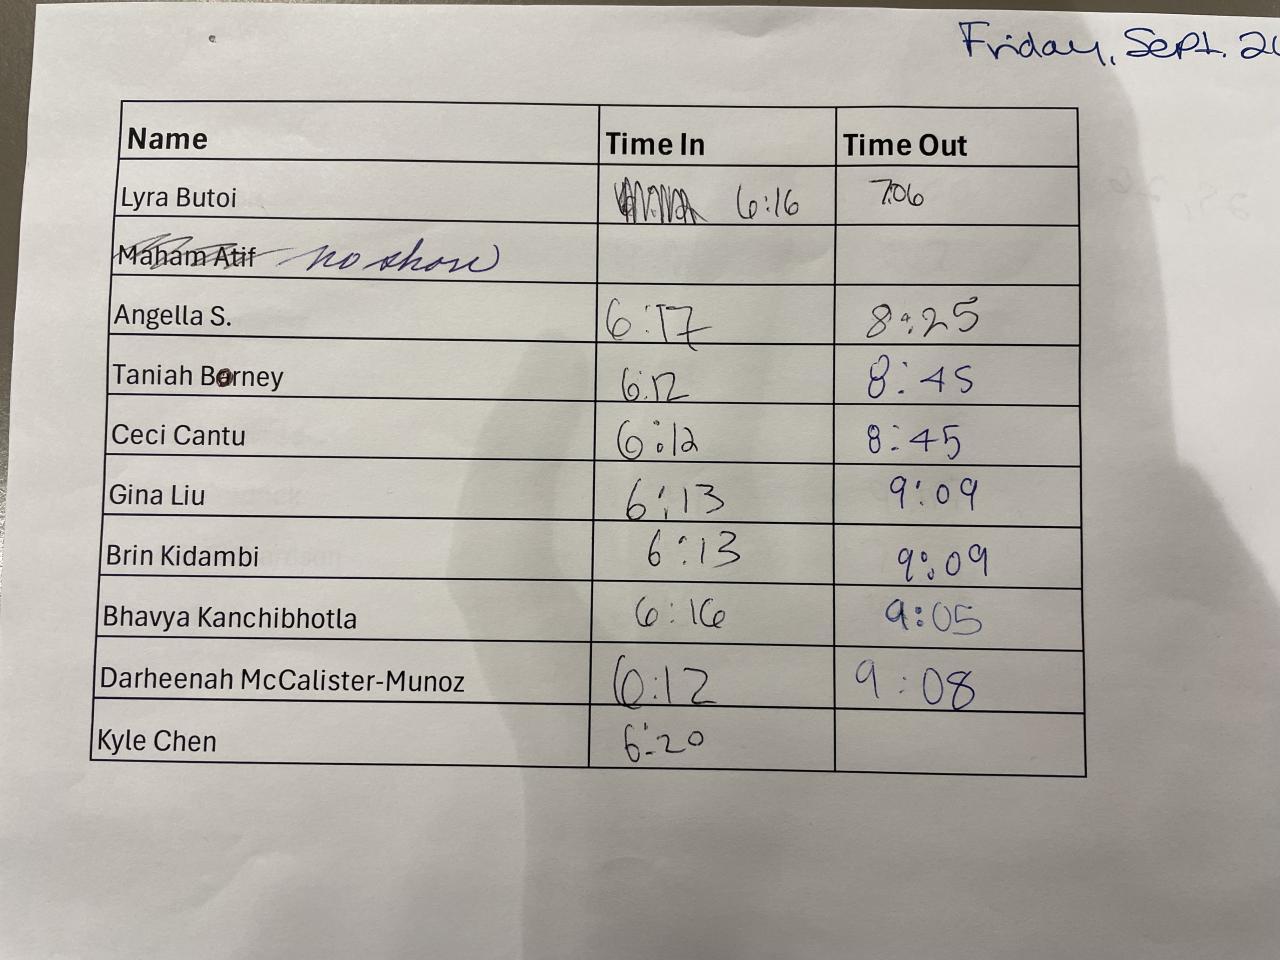 Friday, Sept. 20
Name Time In Time Out
Lyra Butoi 6:16 7:06
Maham Atif no show
Angella S. 6:17 8:25
Taniah Barney 6:12 8:45
Ceci Cantu 6:12 8:45
Gina Liu 6:13 9:09
Brin Kidambi 6:13 9:09
Bhavya Kanchibhotla 6:16 9:05
Darheenah McCalister-Munoz 6:12 9:08
Kyle Chen 6:20